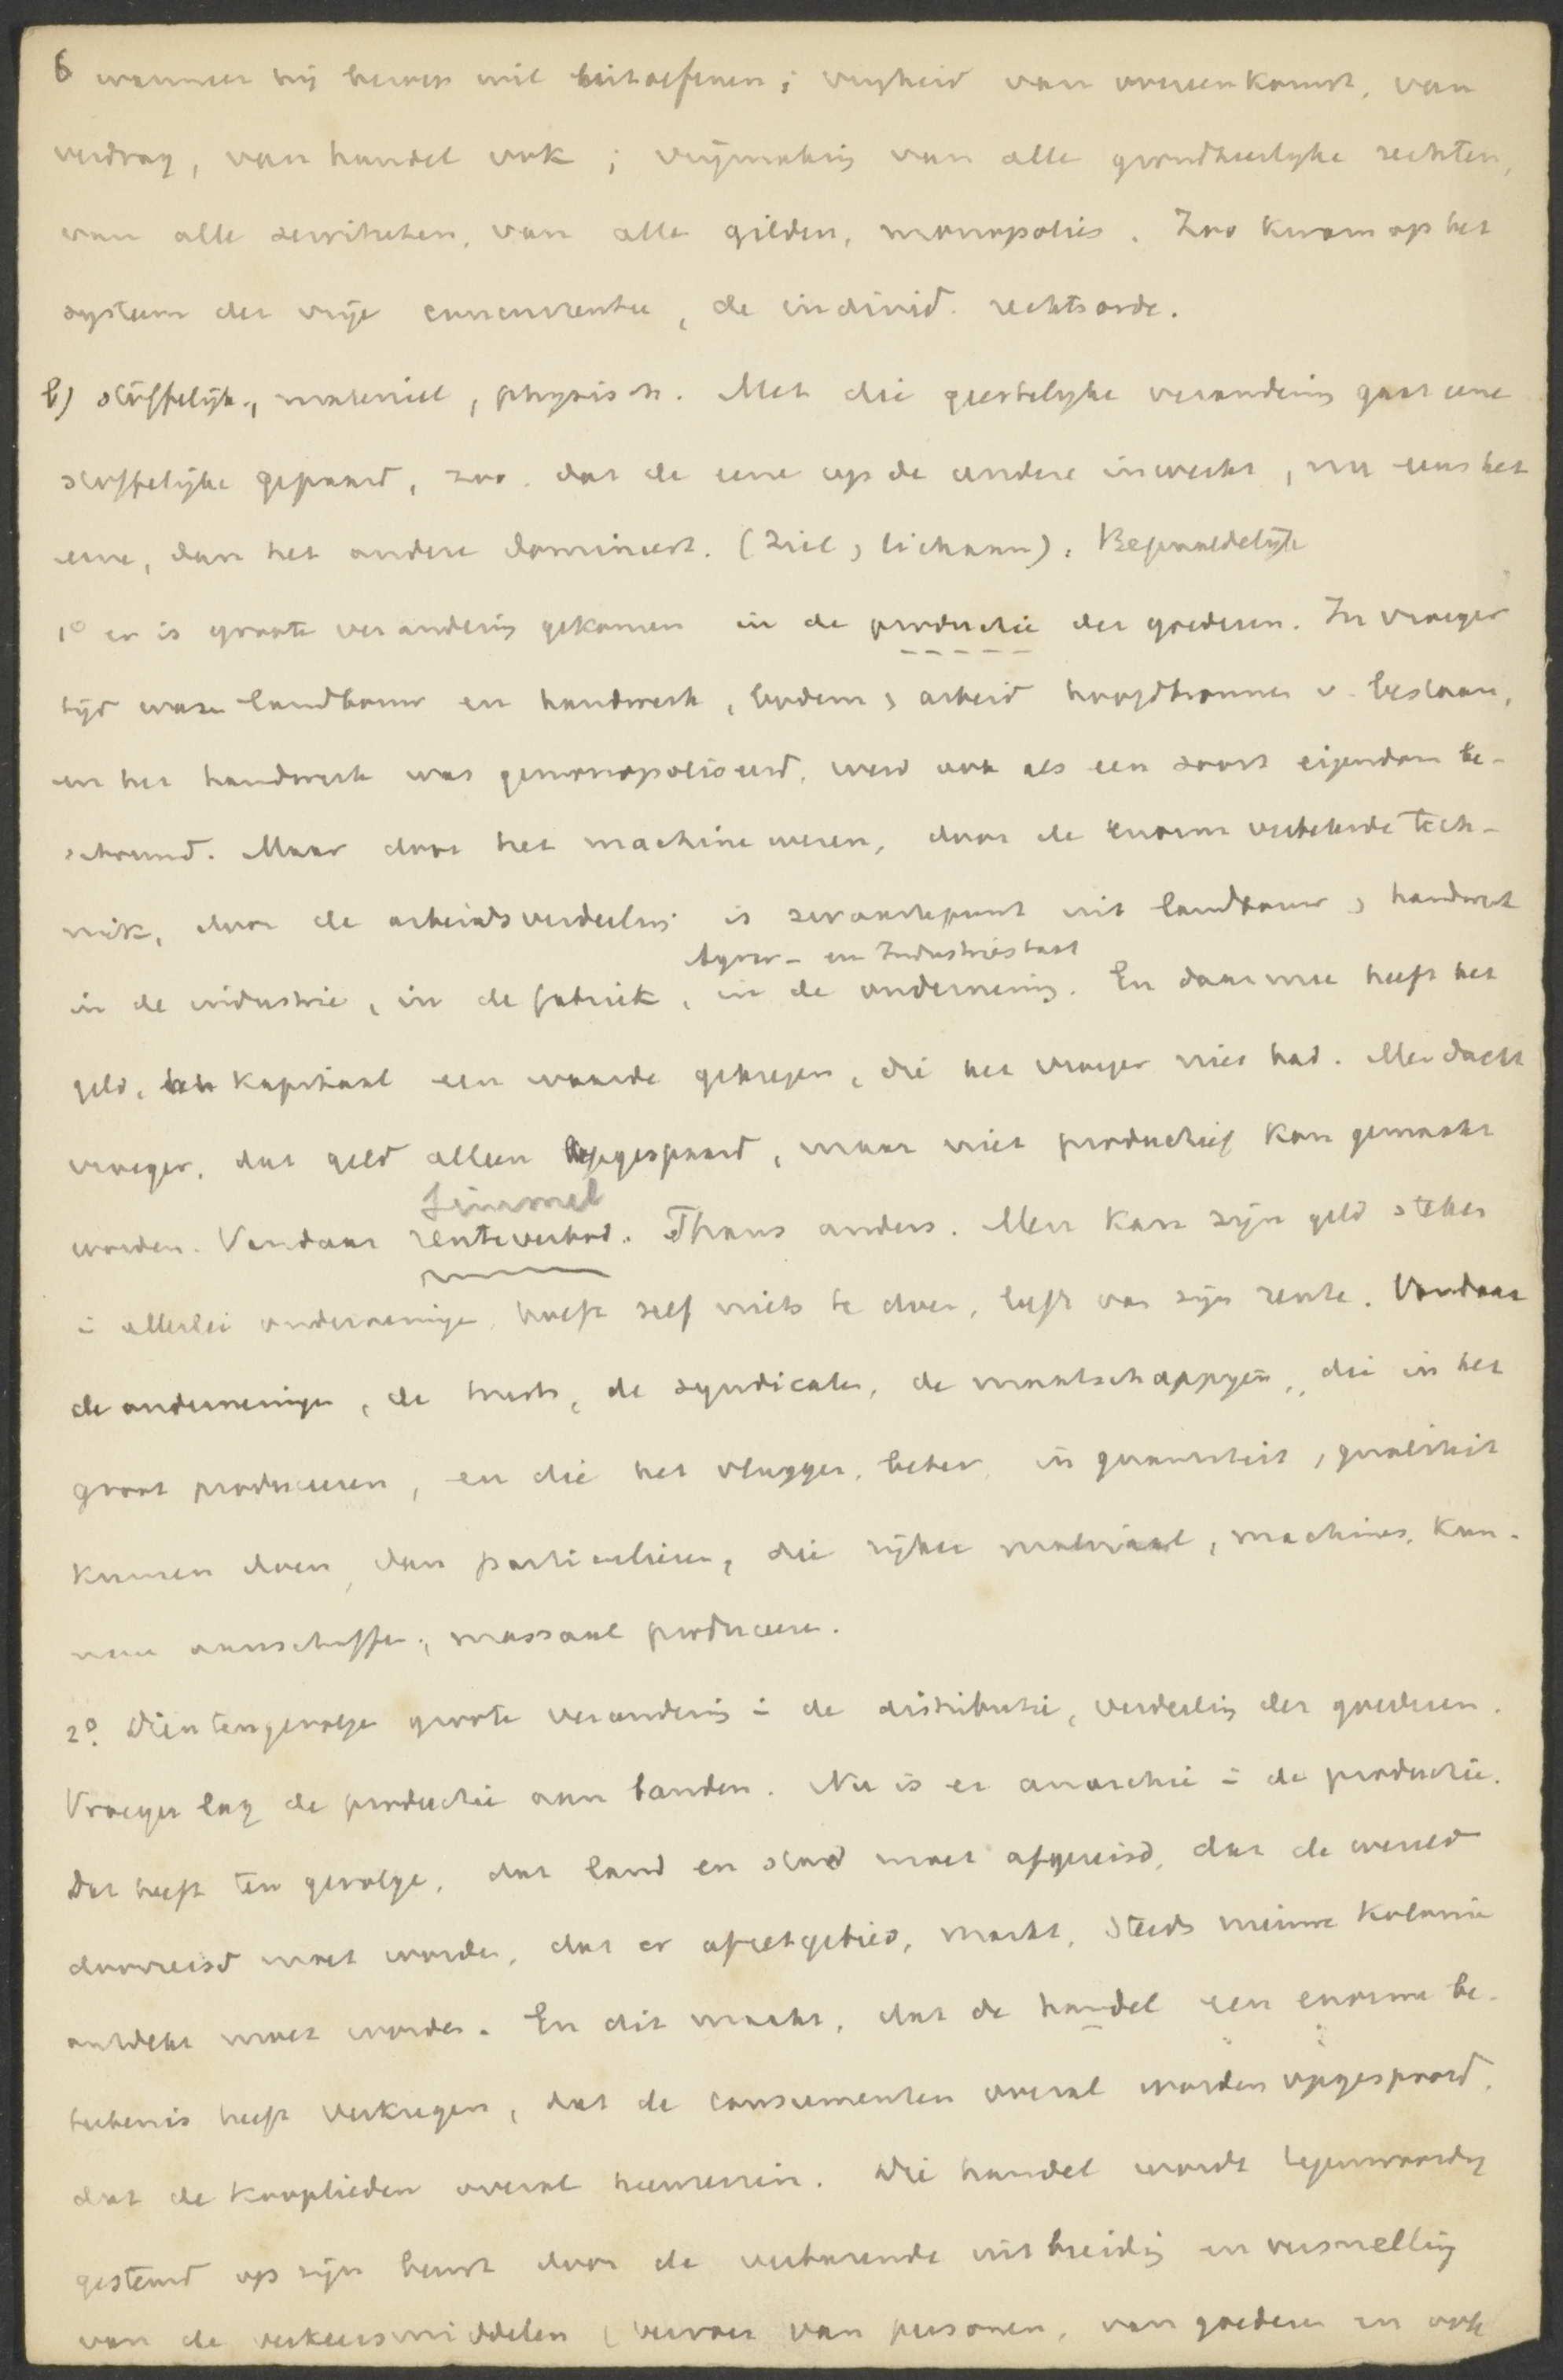 6 wanneer hij beroep wil uitoefenen; vrijheid van overeenkomst, van
verdrag, van handel ook; vrijmaking van alle grondheerlijke rechten,
van alle servituten, van alle gilden, monopolies. Zoo kwam op het
systeem der vrije concurrentie, de individ. rechtsorde.
b) stoffelijk, materieel, physisch. Met die geestelijke verandering gaat eene
stoffelijke gepaard, zoo dat de eene op de andere inwerkt, nu eens het
eene, dan het andere domineert. (Ziel, lichaam). Bepaaldelijk
1º er is groote verandering gekomen in de productie der goederen. In vroeger
tijd waren landbouw en handwerk, bodem, arbeid hoofdbronnen v. bestaan,
en het handwerk was gemonopoliseerd, werd ook als een soort eigendom be-
schouwd. Maar door het machinewezen, door de enorm verbeterde tech-
niek, door de arbeidsverdeeling is zwaartepunt uit landbouw, handwerk
Agrar- en Industriestaat
in de industrie, in de fabriek, in de onderneming. En daarmee heeft het
geld, het kapitaal een waarde gekregen, die het vroeger niet had. Men dacht
vroeger, dat geld alleen opgespaard, maar niet productief kon gemaakt
Simmel
worden. Vandaar renteverbod. Thans anders. Men kan zijn geld steken
in allerlei ondernemingen, hoeft zelf niets te doen, leeft van zijn rente. Vandaar
de ondernemingen, de trusts, de syndicaten, de maatschappijen, die in het
groot produceeren, en die het vlugger, beter, in quantiteit, qualiteit
kunnen doen, dan particulieren, die rijker materiaal, machines, kun-
nen aanschaffen, massaal produceeren.
2º. Dientengevolge groote verandering in de distributie, verdeeling der goederen.
Vroeger lag de productie aan banden. Nu is er anarchie in de productie.
Dat heeft ten gevolge, dat land en stad moet afgereisd, dat de wereld
doorreisd moet worden, dat er afzetgebied, markt, steeds nieuwe kolonie
ontdekt moet worden. En dit maakt, dat de handel een enorme be-
teekenis heeft verkregen, dat de consumenten overal worden opgespoord,
dat de kooplieden overal heenreizen. Die handel wordt tegenwoordig
gesteund op zijn beurt door de verbazende uitbreiding en versnelling
van de verkeersmiddelen, vervoer van personen, van goederen en ook